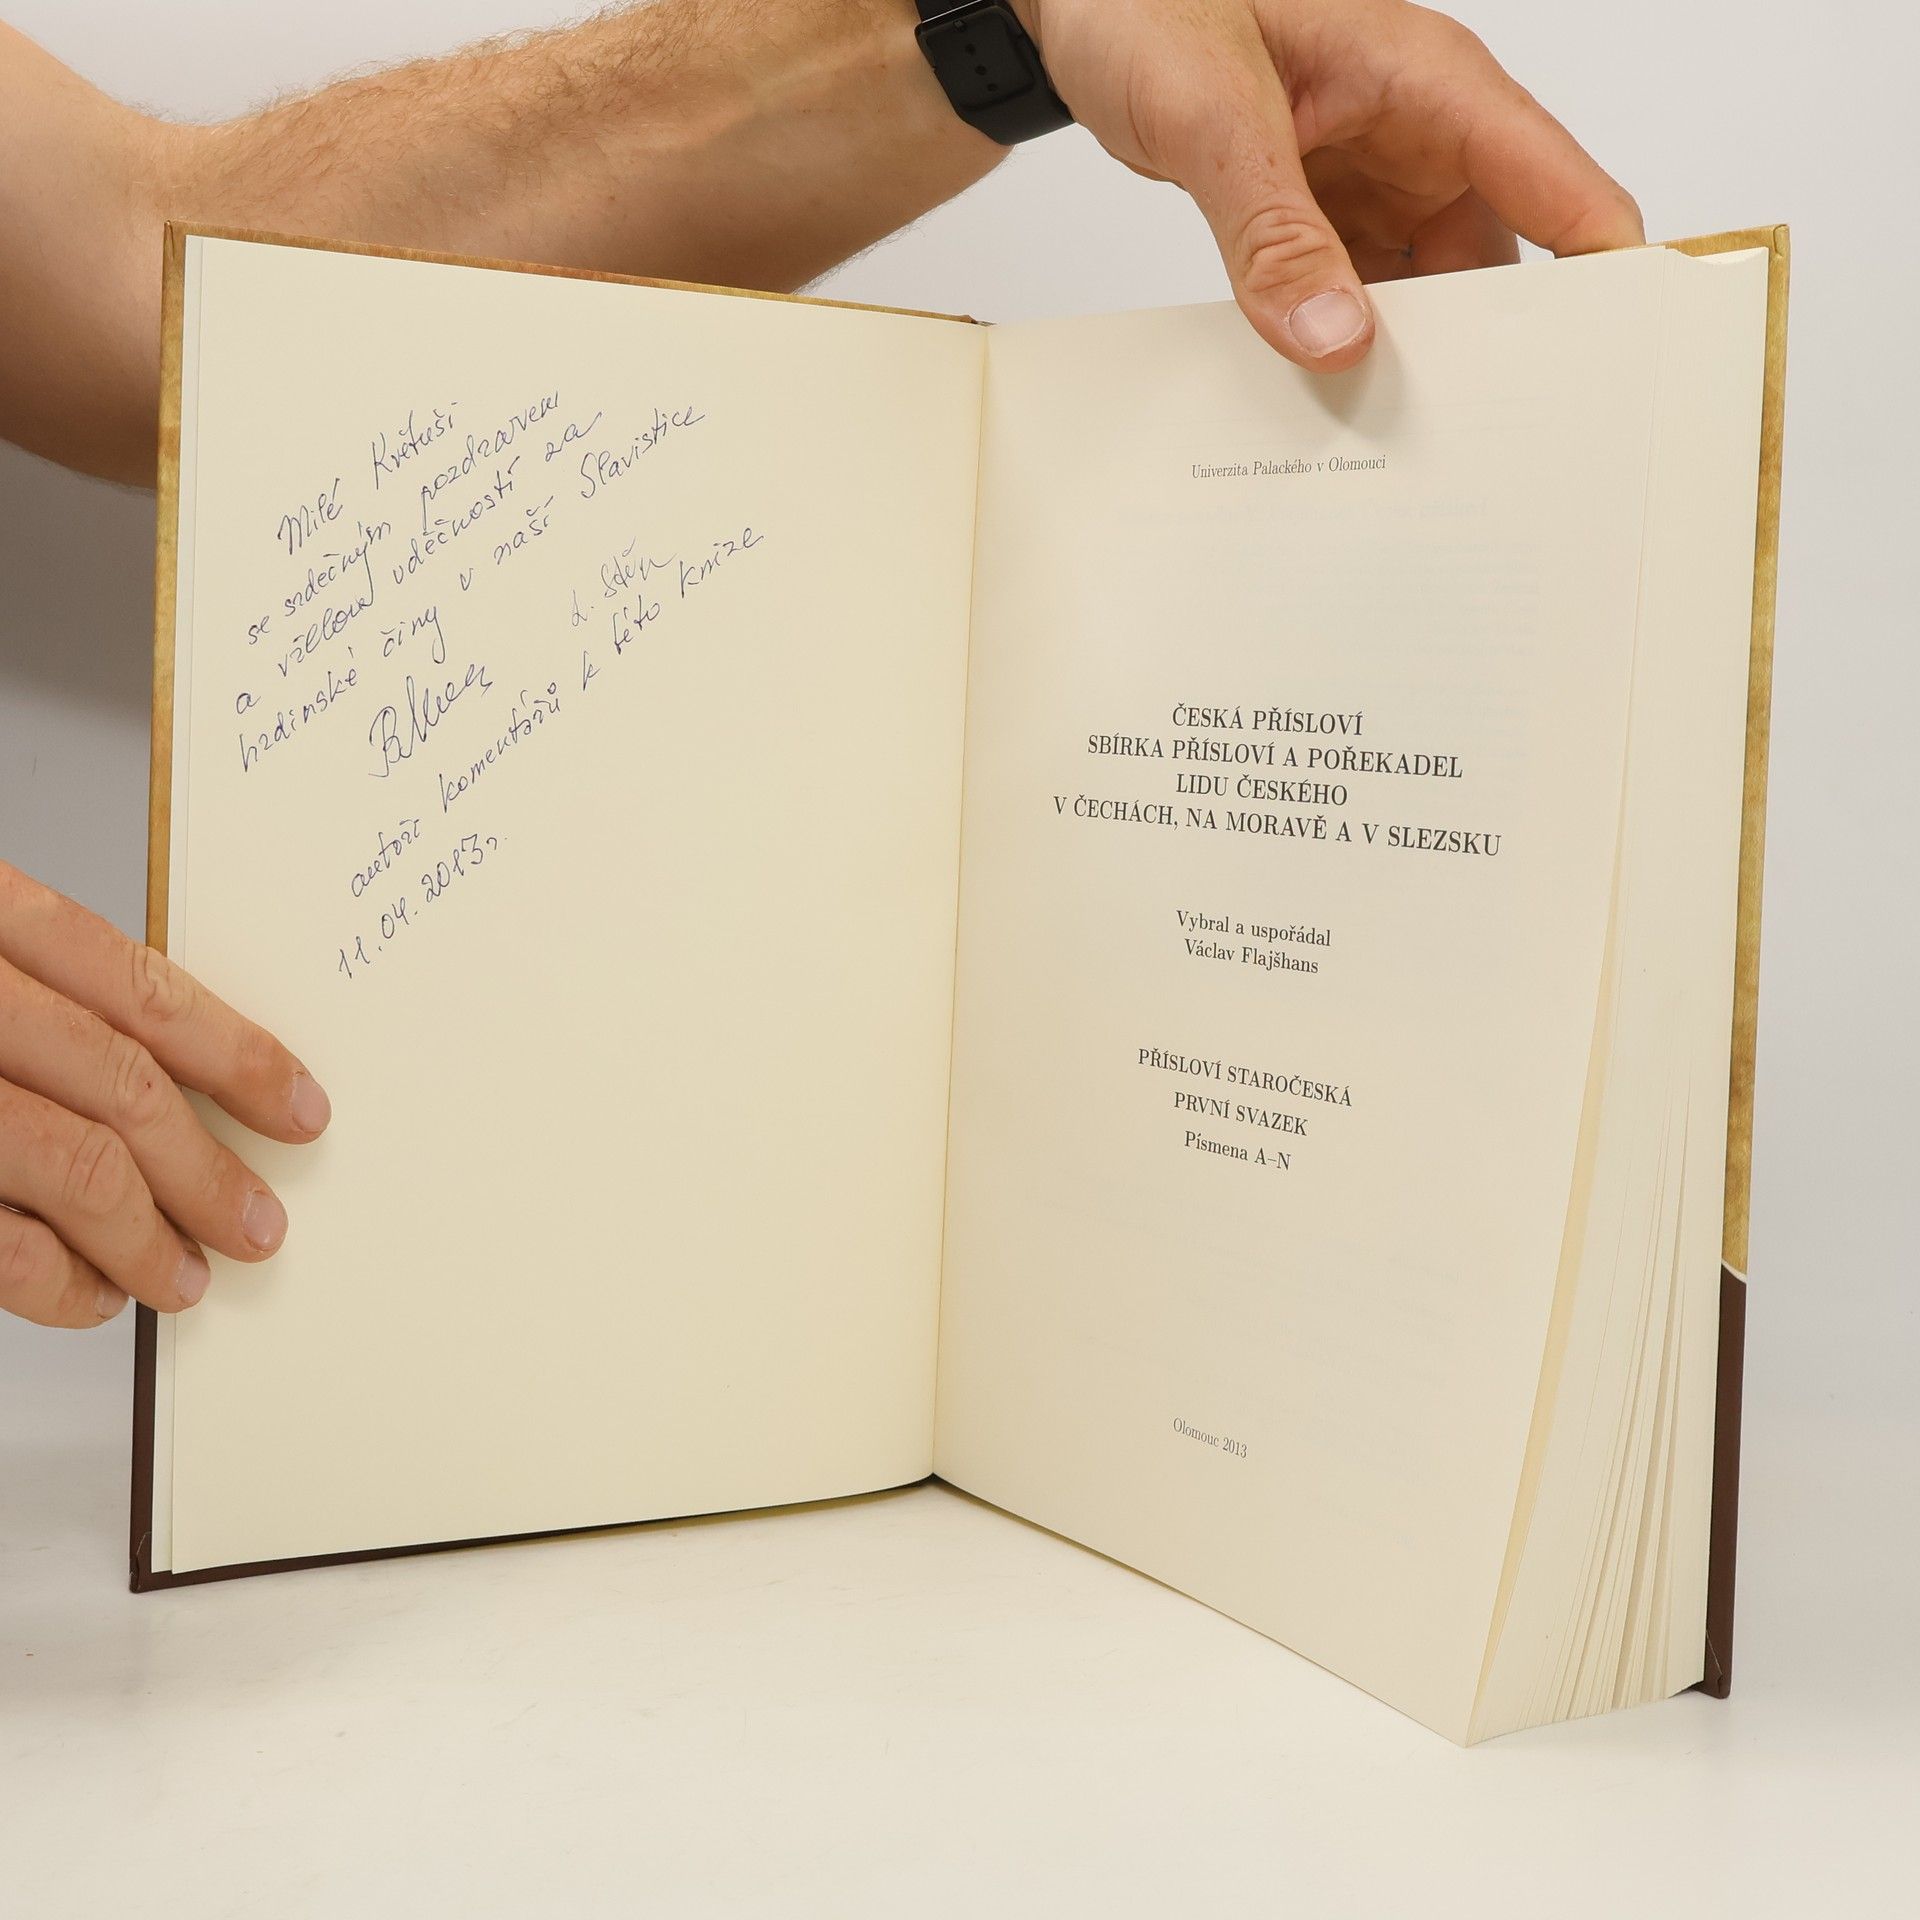 Milé Květuši
se srdečným pozdravem
a vřelou vděčností za
hrdinské činy v naší Slavistice
autoři komentářů k této knize
11.04.2013 r.
Univerzita Palackého v Olomouci
ČESKÁ PŘÍSLOVÍ
SBÍRKA PŘÍSLOVÍ A POŘEKADEL
LIDU ČESKÉHO
V ČECHÁCH, NA MORAVĚ A V SLEZSKU
Vybral a uspořádal
Václav Flajšhans
PŘÍSLOVÍ STAROČESKÁ
PRVNÍ SVAZEK
Písmena A–N
Olomouc 2013